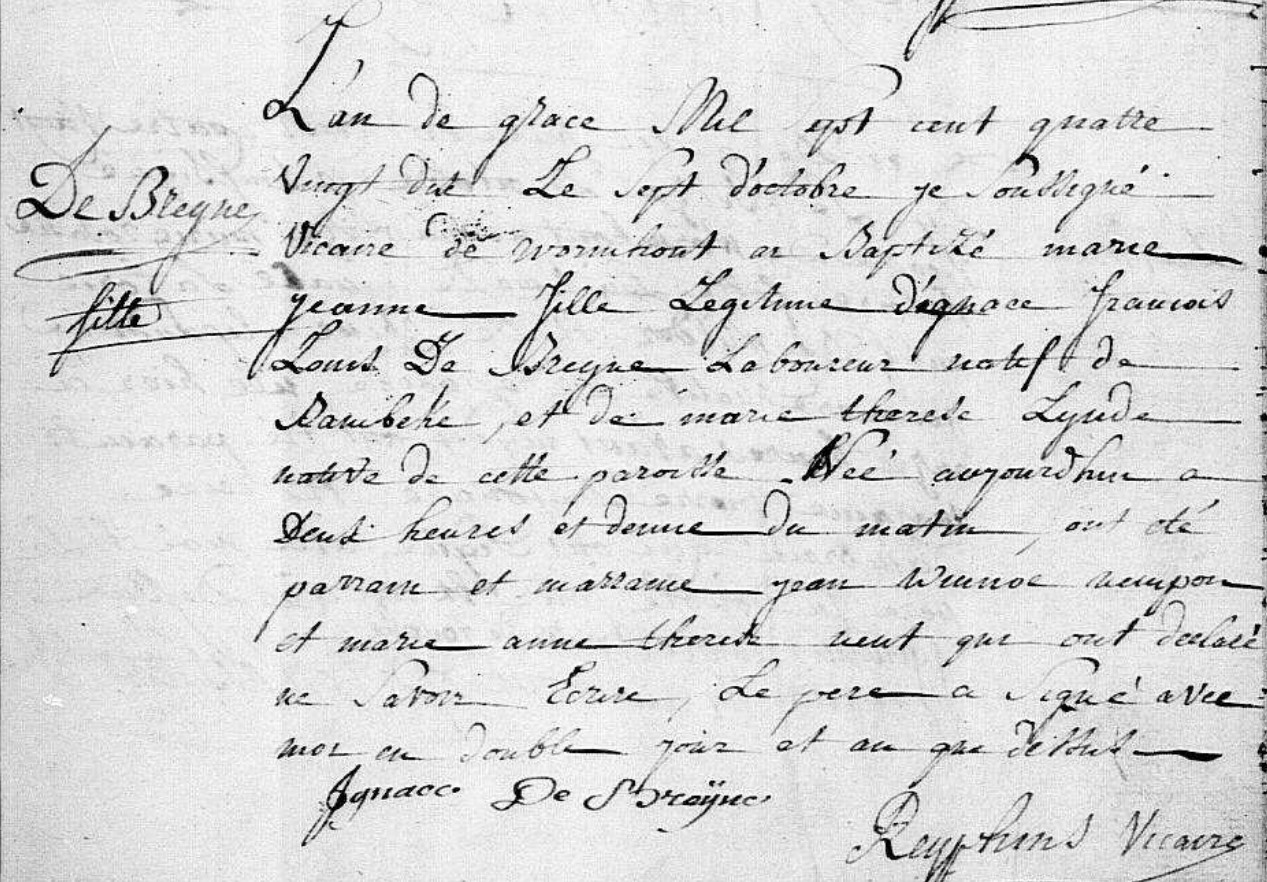 L'an de grace Mil sept cent quatre
Vingt dix Le Sept d'octobre je Soussigné
De Breyne
Vicaire de wormhout ai Baptizé marie
fille
jeanne fille Legitime d'ignace francois
Louis De Breyne Laboureur natif de
Bambeke, et de marie therese Lynde
native de cette paroisse Neé aujourdhui a
Deux heures et demie du matin, ont eté
parrain et marraine jean Winnoc
et marie anne therese qui ont declaré
ne Savoir Ecrire, Le pere a Signé avec
moi en double jour et an que dessus
Ignace De Breÿne
Vicaire